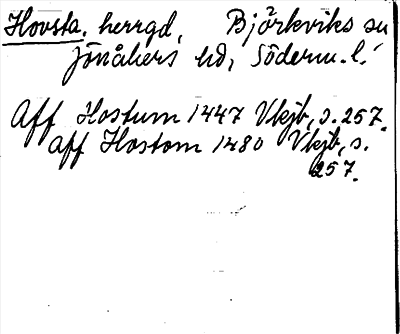 Hovsta, herrgd, Björkviks sn
Jönåkers hd, Söderm. l.
Aff Hostum 1447 Vkjb, s. 257.
aff Hostom 1480 Vkjb, s.
257.